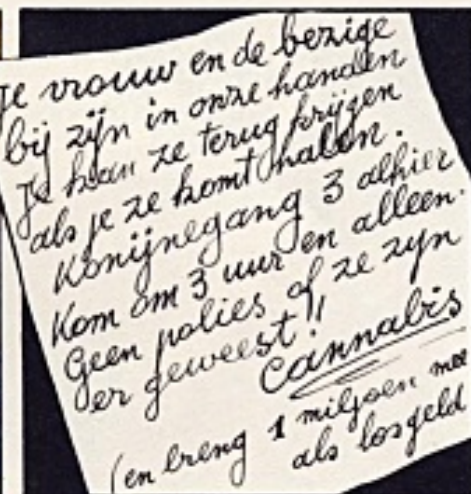 Je vrouw en de bezige
bij zijn in onze handen
Je kan ze terug krijgen
als je ze komt halen.
Konijnegang 3 alhier
Kom om 3 uur en alleen.
Geen polies of ze zijn
er geweest!!
Cannabis
(en breng 1 miljoen mee
als losgeld